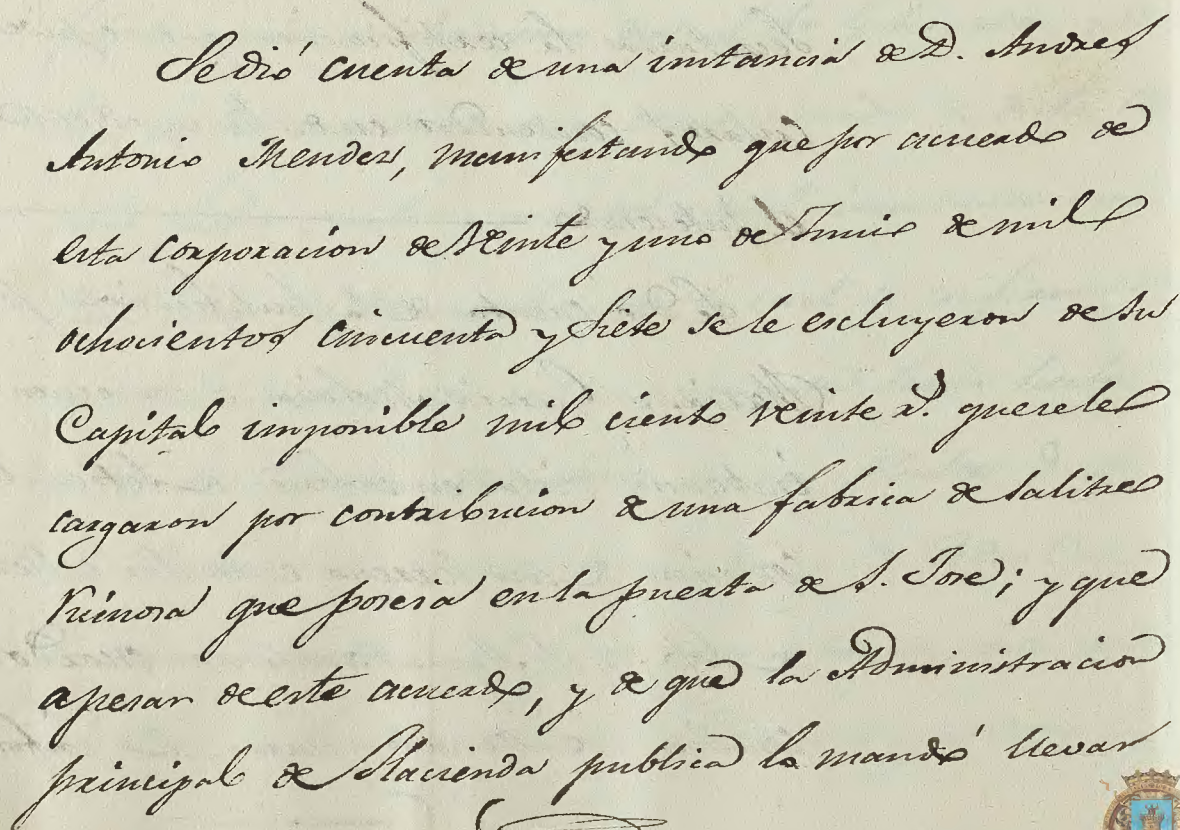 Se dió cuenta de una instancia de D. Andres
Antonio Mendez, manifestando que por acuerdo de
esta corporacion de Veinte y uno de Junio de mil
ochocientos cincuenta y Siete se le escluyeron de su
Capital imponible mil ciento veinte r.s que se le
cargaron por contribucion de una fabrica de Salitre
ruinosa que poseia en la puerta de S. Jose; y que
apesar de este acuerdo, y de que la Administracion
principal de Hacienda publica lo mandó llevar